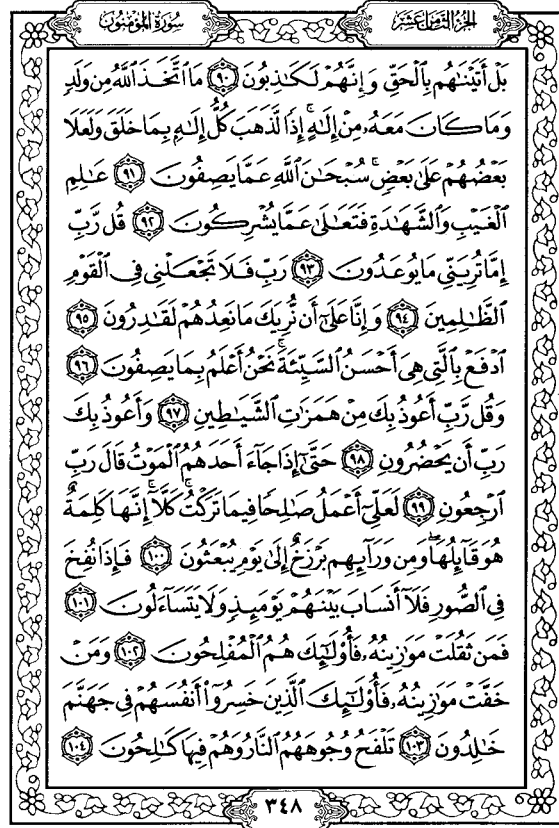 سُورَةُ المُؤْمِنُون
الجُزْءُ الثَّامِنَ عَشَرَ
بَلْ أَتَيْنَٰهُم بِٱلْحَقِّ وَإِنَّهُمْ لَكَٰذِبُونَ ٩٠ مَا ٱتَّخَذَ ٱللَّهُ مِن وَلَدٍ
وَمَا كَانَ مَعَهُۥ مِنْ إِلَٰهٍۚ إِذًا لَّذَهَبَ كُلُّ إِلَٰهٍۭ بِمَا خَلَقَ وَلَعَلَا
بَعْضُهُمْ عَلَىٰ بَعْضٍۚ سُبْحَٰنَ ٱللَّهِ عَمَّا يَصِفُونَ ٩١ عَٰلِمِ
ٱلْغَيْبِ وَٱلشَّهَٰدَةِ فَتَعَٰلَىٰ عَمَّا يُشْرِكُونَ ٩٢ قُل رَّبِّ
إِمَّا تُرِيَنِّى مَا يُوعَدُونَ ٩٣ رَبِّ فَلَا تَجْعَلْنِى فِى ٱلْقَوْمِ
ٱلظَّٰلِمِينَ ٩٤ وَإِنَّا عَلَىٰٓ أَن نُّرِيَكَ مَا نَعِدُهُمْ لَقَٰدِرُونَ ٩٥
ٱدْفَعْ بِٱلَّتِى هِىَ أَحْسَنُ ٱلسَّيِّئَةَۚ نَحْنُ أَعْلَمُ بِمَا يَصِفُونَ ٩٦
وَقُل رَّبِّ أَعُوذُ بِكَ مِنْ هَمَزَٰتِ ٱلشَّيَٰطِينِ ٩٧ وَأَعُوذُ بِكَ
رَبِّ أَن يَحْضُرُونِ ٩٨ حَتَّىٰٓ إِذَا جَآءَ أَحَدَهُمُ ٱلْمَوْتُ قَالَ رَبِّ
ٱرْجِعُونِ ٩٩ لَعَلِّىٓ أَعْمَلُ صَٰلِحًا فِيمَا تَرَكْتُۚ كَلَّآۚ إِنَّهَا كَلِمَةٌ
هُوَ قَآئِلُهَاۖ وَمِن وَرَآئِهِم بَرْزَخٌ إِلَىٰ يَوْمِ يُبْعَثُونَ ١٠٠ فَإِذَا نُفِخَ
فِى ٱلصُّورِ فَلَآ أَنسَابَ بَيْنَهُمْ يَوْمَئِذٍ وَلَا يَتَسَآءَلُونَ ١٠١
فَمَن ثَقُلَتْ مَوَٰزِينُهُۥ فَأُو۟لَٰٓئِكَ هُمُ ٱلْمُفْلِحُونَ ١٠٢ وَمَنْ
خَفَّتْ مَوَٰزِينُهُۥ فَأُو۟لَٰٓئِكَ ٱلَّذِينَ خَسِرُوٓا۟ أَنفُسَهُمْ فِى جَهَنَّمَ
خَٰلِدُونَ ١٠٣ تَلْفَحُ وُجُوهَهُمُ ٱلنَّارُ وَهُمْ فِيهَا كَٰلِحُونَ ١٠٤
٣٤٨